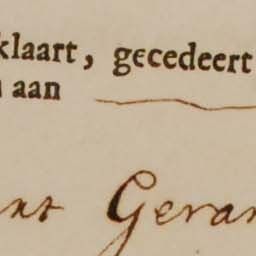 klaart, gecedeert
aan
nt Geran